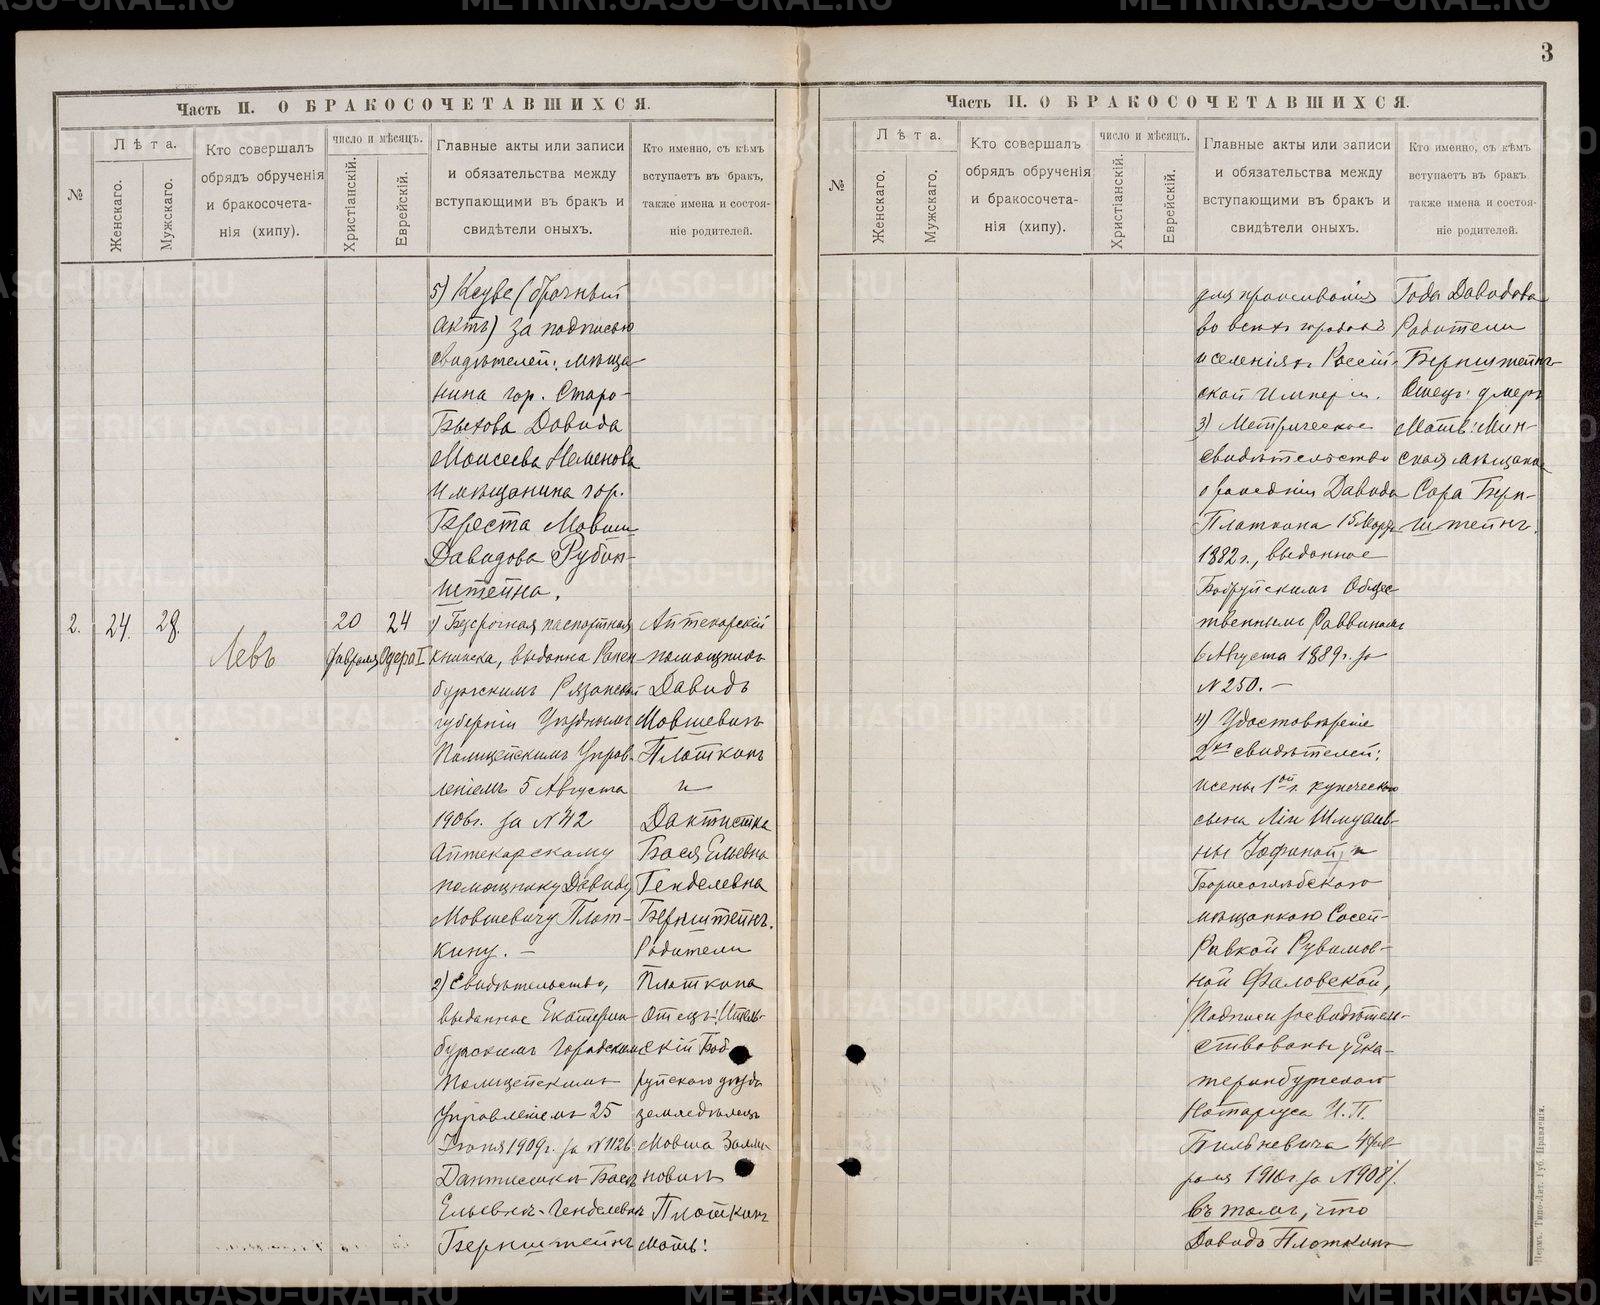 3
Часть II. О БРАКОСОЧЕТАВШИХСЯ.
№
Лѣта.
Женскаго.
Мужскаго.
Кто совершалъ
обрядъ обрученія
и бракосочета-
нія (хипу).
число и мѣсяцъ.
Христіанскій.
Еврейскій.
Главные акты или записи
и обязательства между
вступающими въ бракъ и
свидѣтели оныхъ.
Кто именно, съ кѣмъ
вступаетъ въ бракъ,
также имена и состоя-
ніе родителей.
5) Ксуве (брачный
актъ) за подписью
свидѣтелей: мѣща-
нина гор. Старо-
Быхова Давида
Моисеева Неменова
и мѣщанина гор.
Бреста Мовши
Давидова Рубин-
штейна.
2.
24.
28.
Левъ
20
февраля
24
Одера I
1) Безсрочная паспортная
книжка, выдана Ранен-
бургскимъ Рязанской
губерніи Уѣзднымъ
Полицейскимъ Управ-
леніемъ 5 Августа
1906г. за N 42
Аптекарскому
помощнику Давиду
Мовшевичу Плот-
кину. —
2) Свидѣтельство,
выданное Екатерин-
бургскимъ Городскимъ
Полицейскимъ
Управленіемъ 25
Іюня 1909г. за N 1126
Дантисткѣ Басѣ
Ельевнѣ-Генделевнѣ
Бернштейнъ
Аптекарскій
помощникъ
Давидъ
Мовшевичъ
Плоткинъ
и
Дантистка
Бася Ельевна
Генделевна
Бернштейнъ.
Родители
Плоткина
Отецъ:
скій Боб-
руйскаго уѣзда
земледѣлецъ
Мовша Залма-
новичъ
Плоткинъ
мать:
Часть II. О БРАКОСОЧЕТАВШИХСЯ.
№
Лѣта.
Женскаго.
Мужскаго.
Кто совершалъ
обрядъ обрученія
и бракосочета-
нія (хипу).
число и мѣсяцъ.
Христіанскій.
Еврейскій.
Главные акты или записи
и обязательства между
вступающими въ бракъ и
свидѣтели оныхъ.
Кто именно, съ кѣмъ
вступаетъ въ бракъ
также имена и состоя-
ніе родителей.
для проживанія
во всѣхъ городахъ
и селеніяхъ Россій-
ской Имперіи.
3) Метрическое
свидѣтельство
о рожденіи Давида
Плоткина 15 Марта
1882г., выданное
Бобруйскимъ Общес-
твеннымъ Раввиномъ
6 Августа 1889г. за
N 250. —
4) Удостовѣреніе
2хъ свидѣтелей:
жены 1ой г. купеческаго
сына Ліи Шмуилев-
ны и
Борисоглѣбскою
мѣщанкою Сосей-
Ривкой Рувимов-
ной Фаловской,
/Подписи засвидѣтель-
ствованы у Ека-
теринбургскаго
Нотаріуса И.П.
Билькевича 4 фев-
раля 1910г за N 908/.
въ томъ, что
Давидъ Плоткинъ
Года Давидова
Родители
Бернштейнъ
Отецъ: умеръ
Мать: Мин-
ская мѣщанка
Сора Берн-
штейнъ.
Пермь. Типо-Лит. Губ. Правленія.
METRIKI.GASO-URAL.RU